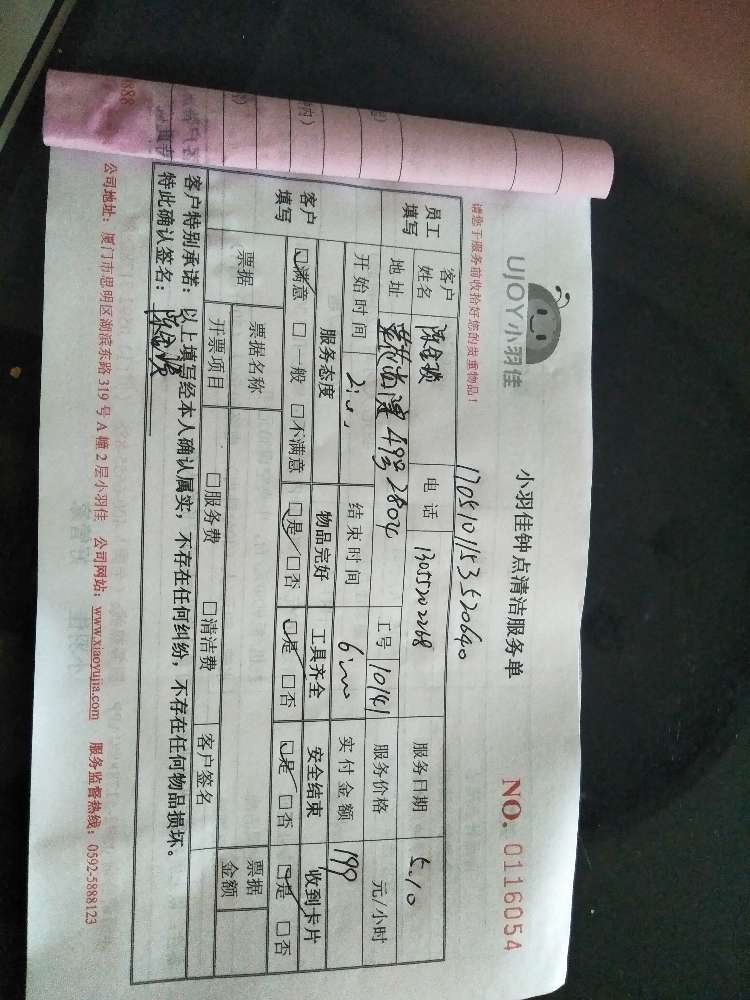 UJOY小羽佳
小羽佳钟点清洁服务单
NO. 0116054
请您于服务前收拾好您的贵重物品！
170510115352064０
员工填写 客户姓名 电话 13055202268 服务日期 5.10
地址 49号2804 工号 10141 服务价格 元/小时
开始时间 结束时间 实付金额 190
客户填写 服务态度 物品完好 工具齐全 安全结束 收到卡片
□满意 □一般 □不满意 □是 □否 □是 □否 □是 □否 □是 □否
票据 票据名称 票据金额
开票项目 □服务费 □清洁费 客户签名
客户特别承诺：以上填写经本人确认属实，不存在任何纠纷，不存在任何物品损坏。
特此确认签名：
公司地址：厦门市思明区湖滨东路319号A幢2层小羽佳 公司网站：www.xiaoyujia.com 服务监督热线：0592-5888123